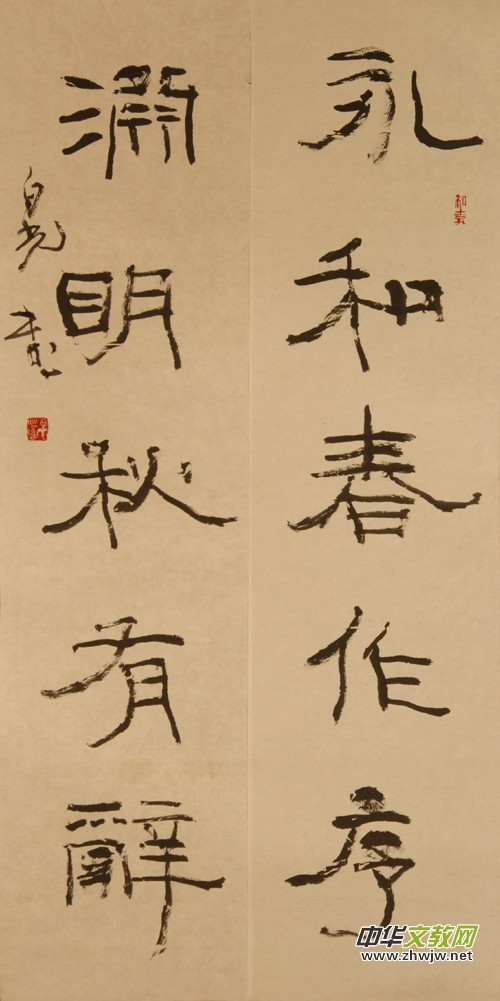 永和春作序
渊明秋有辞
中华文教网
www.zhwjw.net